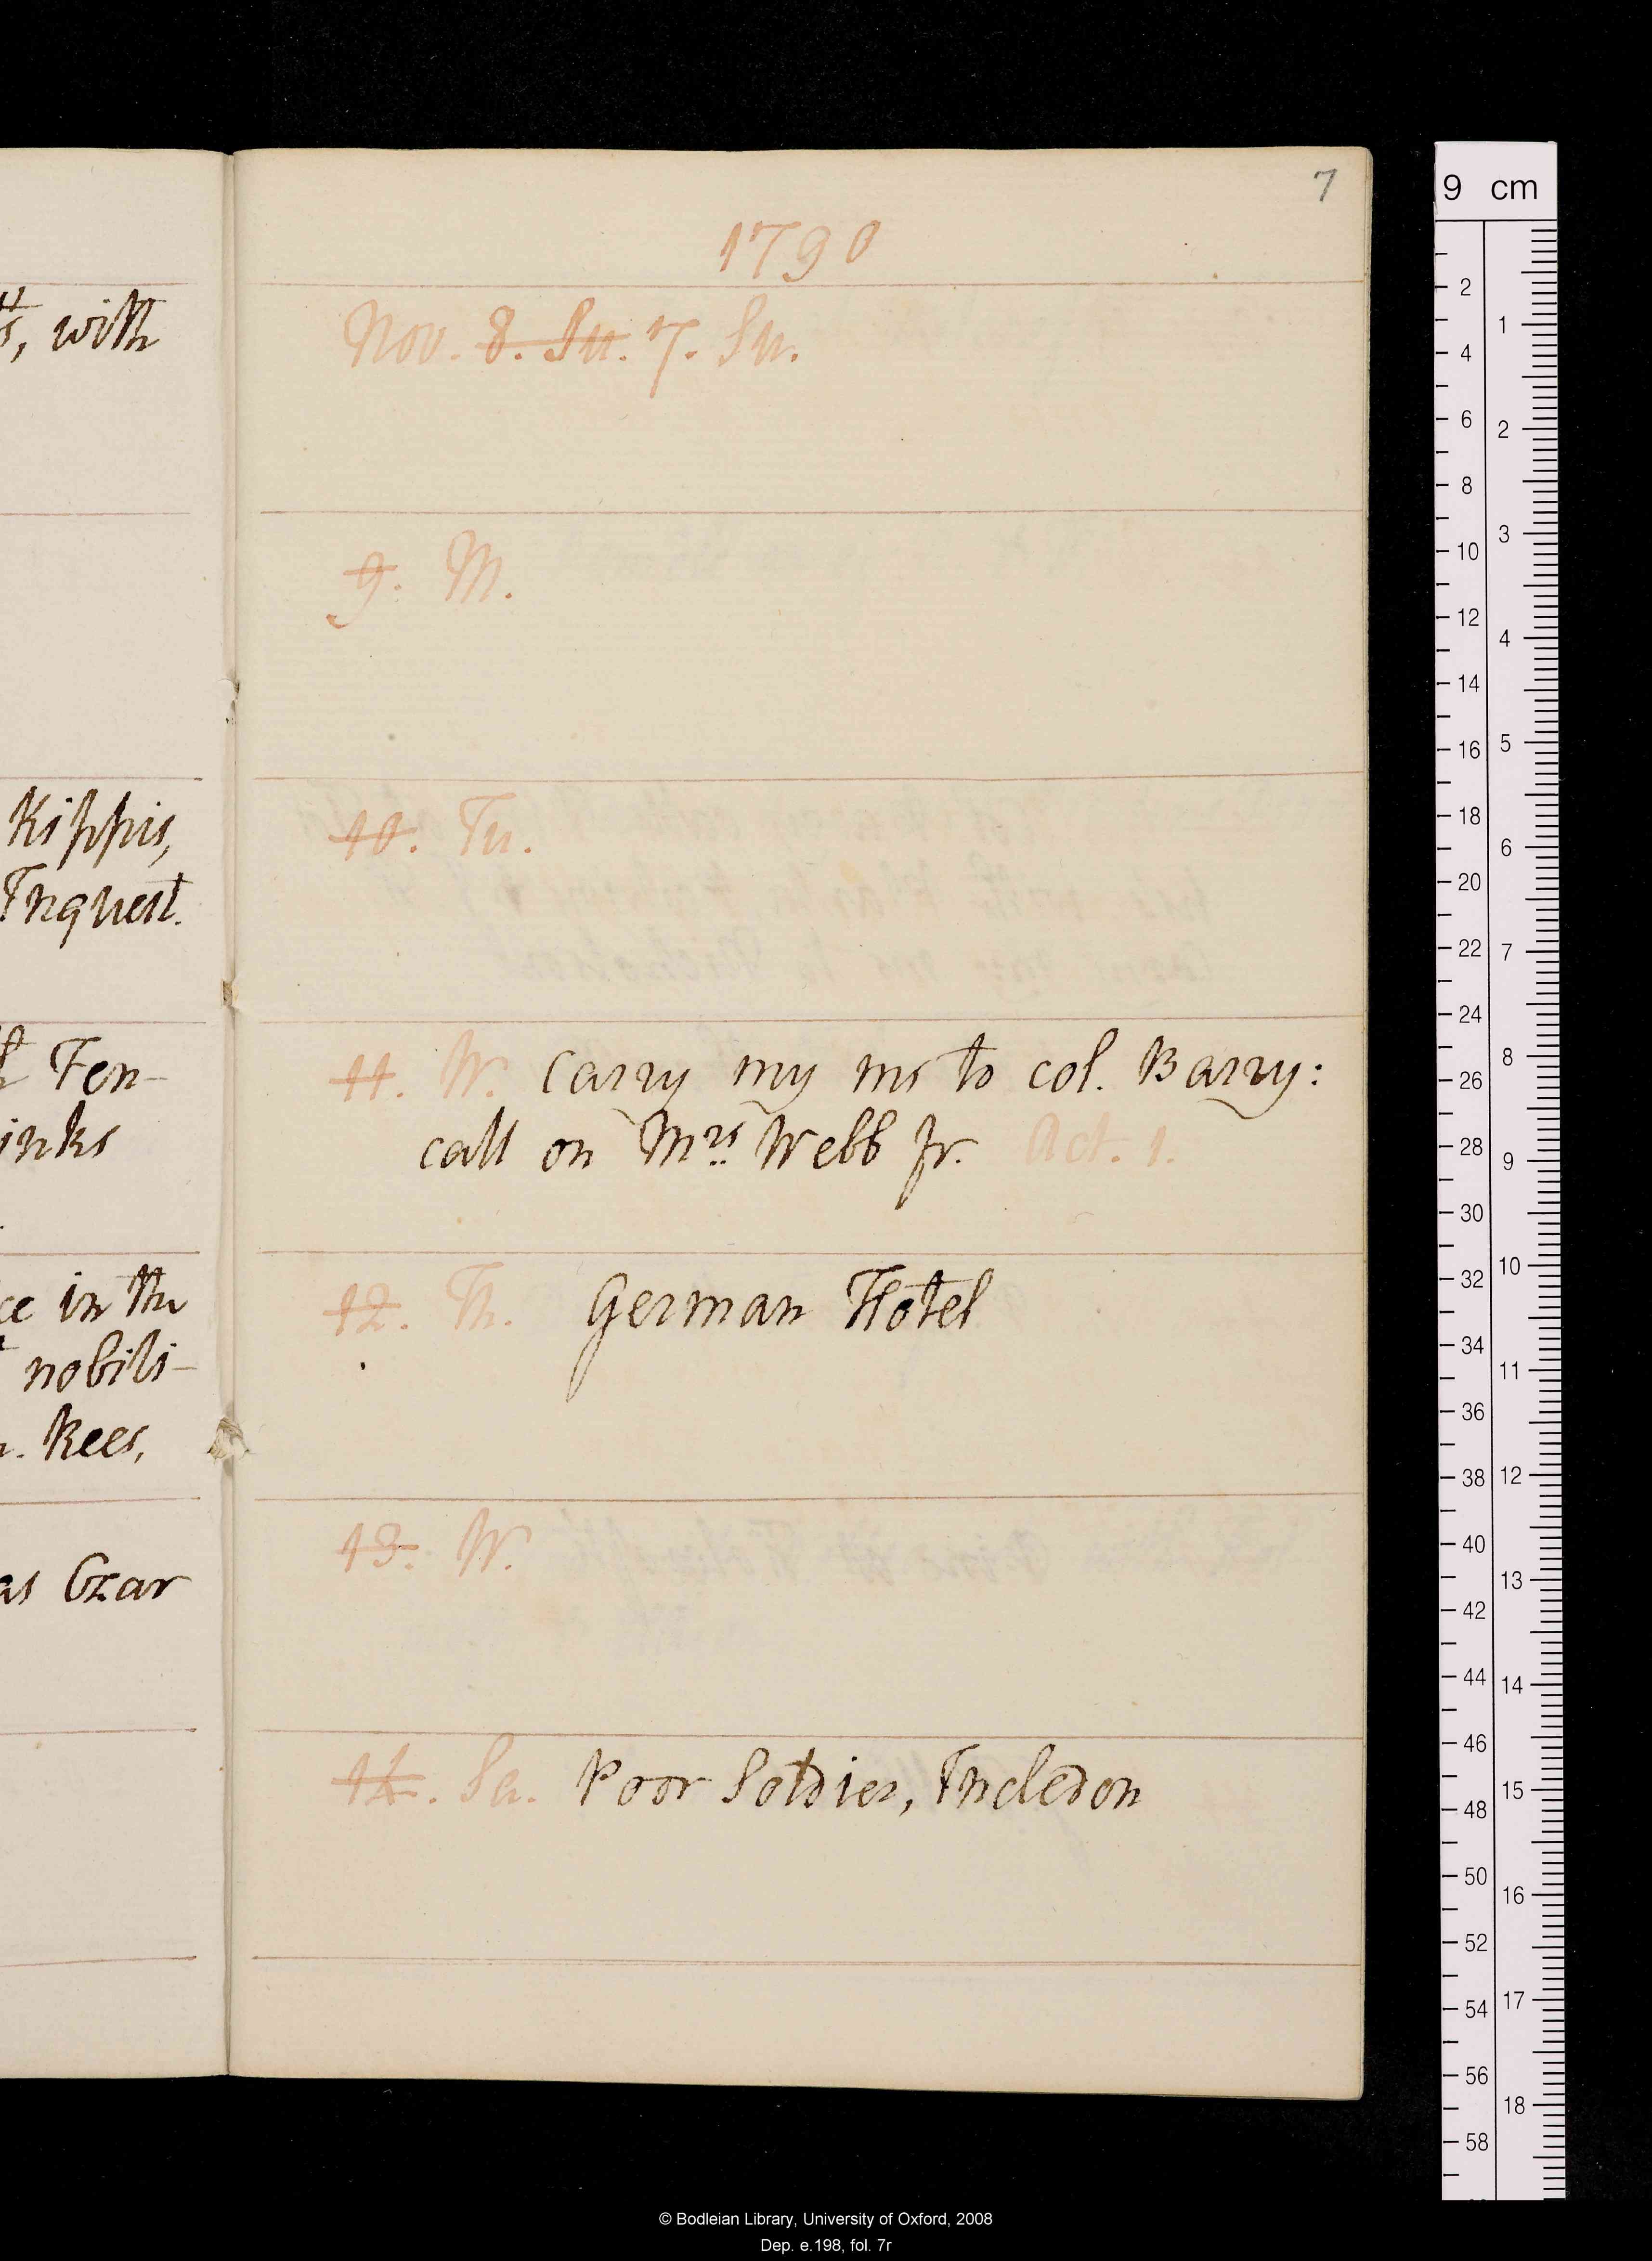 7
1790
Nov. 8. Su. 7. Su.
9. M.
10. Tu.
11. W. Carry my ms to col. Barry:
call on Mrs. Webb jr. Act. 1.
12. Th. German Hotel
13. W.
14. Sa. Poor Soldier, Incledon
, with
Kippis,
Inquest.
Fen-
inks
ce in the
nobili-
. Rees,
as Czar
9 cm
2
4
6
8
10
12
14
16
18
20
22
24
26
28
30
32
34
36
38
40
42
44
46
48
50
52
54
56
58
1
2
3
4
5
6
7
8
9
10
11
12
13
14
15
16
17
18
© Bodleian Library, University of Oxford, 2008
Dep. e.198, fol. 7r